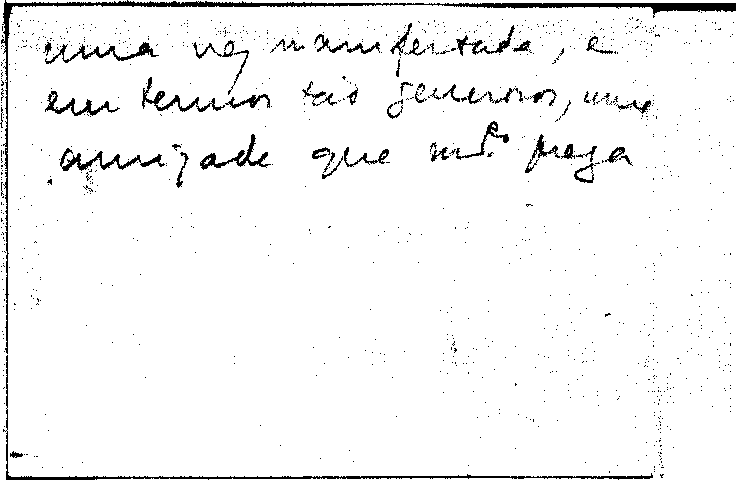 uma vez manifestada, e
em termos tão generosos, uma
amizade que m.to preza